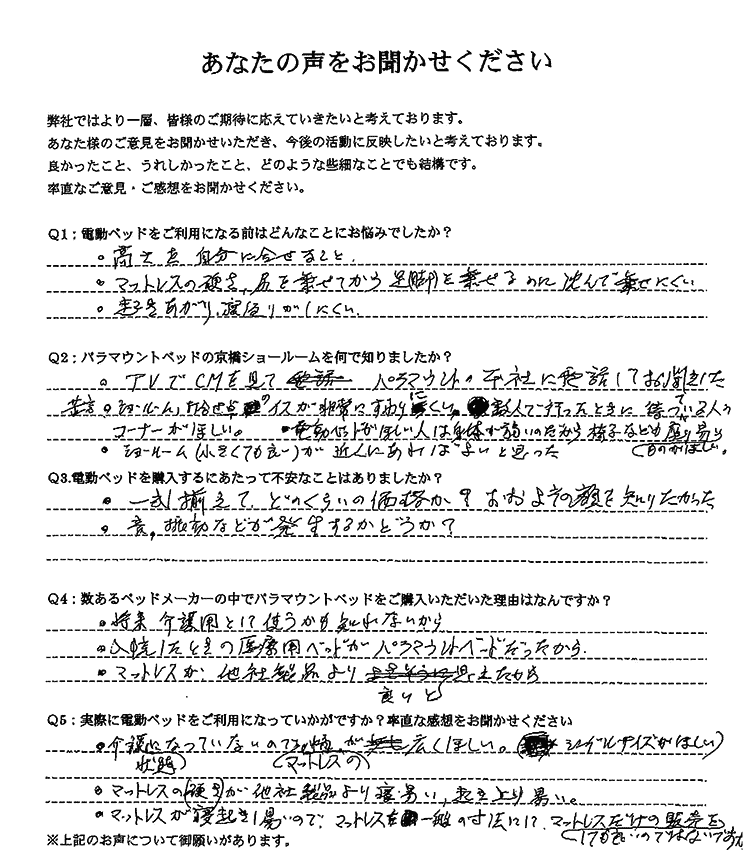 あなたの声をお聞かせください
弊社ではより一層、皆様のご期待に応えていきたいと考えております。
あなた様のご意見をお聞かせいただき、今後の活動に反映したいと考えております。
良かったこと、うれしかったこと、どのような些細なことでも結構です。
率直なご意見・ご感想をお聞かせください。
Q1：電動ベッドをご利用になる前はどんなことにお悩みでしたか？
・高さを自分に合せること、
・マットレスの硬さ、尻を乗せてから足(脚)を乗せるのに沈んで乗せにくい
・起きあがり、寝返りがしにくい、
Q2：パラマウントベッドの京橋ショールームを何で知りましたか？
・TVでCMを見て パラマウントの本社に電話してお聞きした
ショールーム、打合せ イスが非常にすわりにくい、 人で行ったときに待っている人の
コーナーがほしい。 ・電動ベットがほしい人は身体が弱いのだから椅子なども座り易い
ものがほしい。
・ショールーム(小さくても良い)が近くにあればよいと思った
Q3.電動ベッドを購入するにあたって不安なことはありましたか？
・一式揃えて、どのくらいの価格か？おおよその額を知りたかった
・音、振動などが発生するかどうか？
Q4：数あるベッドメーカーの中でパラマウントベッドをご購入いただいた理由はなんですか？
・将来介護用として使うかも知れないから
・入院したときの医療用ベッドがパラマウントベッドだったから
・マットレスが他社製品より 見えたから
良いと
Q5：実際に電動ベッドをご利用になっていかがですか？率直な感想をお聞かせください
・介護になっていないので 幅が 広くほしい。( サイズがほしい)
状態 (マットレスの)
・マットレスの(硬さ)が他社製品より寝易い、起き上り易い。
・マットレスが寝起きし易いので、マットレスを一般の寸法にし、マットレスだけの販売を
しても良いのではないですか
※上記のお声について御願いがあります。